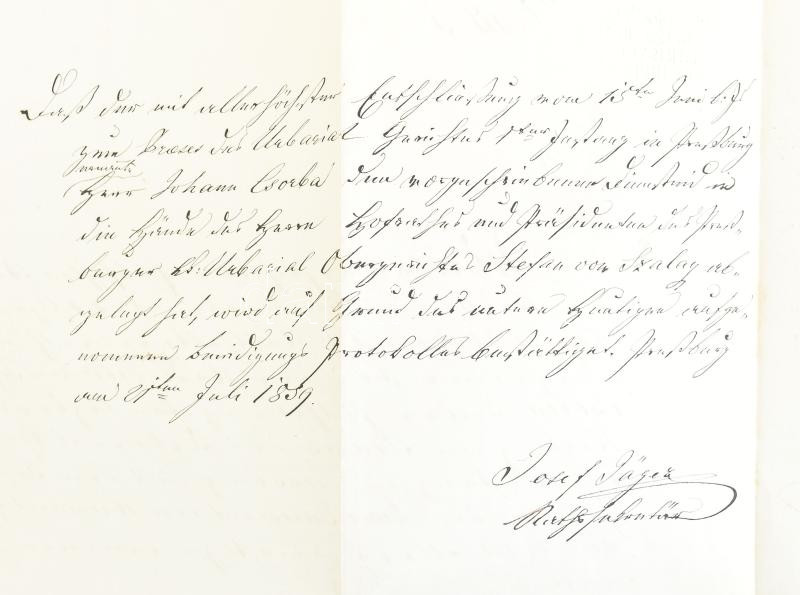 Daß der mit allerhöchster Entschließung vom 15ten Juni l. Js
zum Praeses des Urbarial Gerichtes 1ter Instanz in Preßburg
ernannte
Herr Johann Csorba den vorgeschriebenen Diensteid in
die Hände des Herrn Hofrathes und Präsidenten des Preß-
burger kk: Urbarial Obergerichtes Stefan von Szalay ab-
gelegt hat, wird auf Grund des unterm Heutigen aufge-
nommenen Beeidigungs Protokolles bestättiget. Preßburg
am 21ten Juli 1859.
Josef Jäger
Rathssekretär